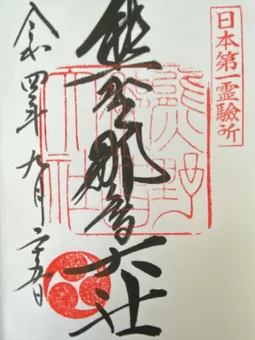 日本第一霊驗所
熊野那智大社
令和四年九月二十五日
熊野
大社